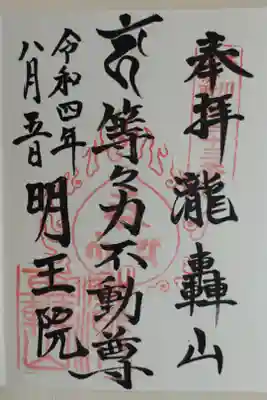 奉拝 瀧轟山
等々力不動尊
令和四年 明王院
八月五日